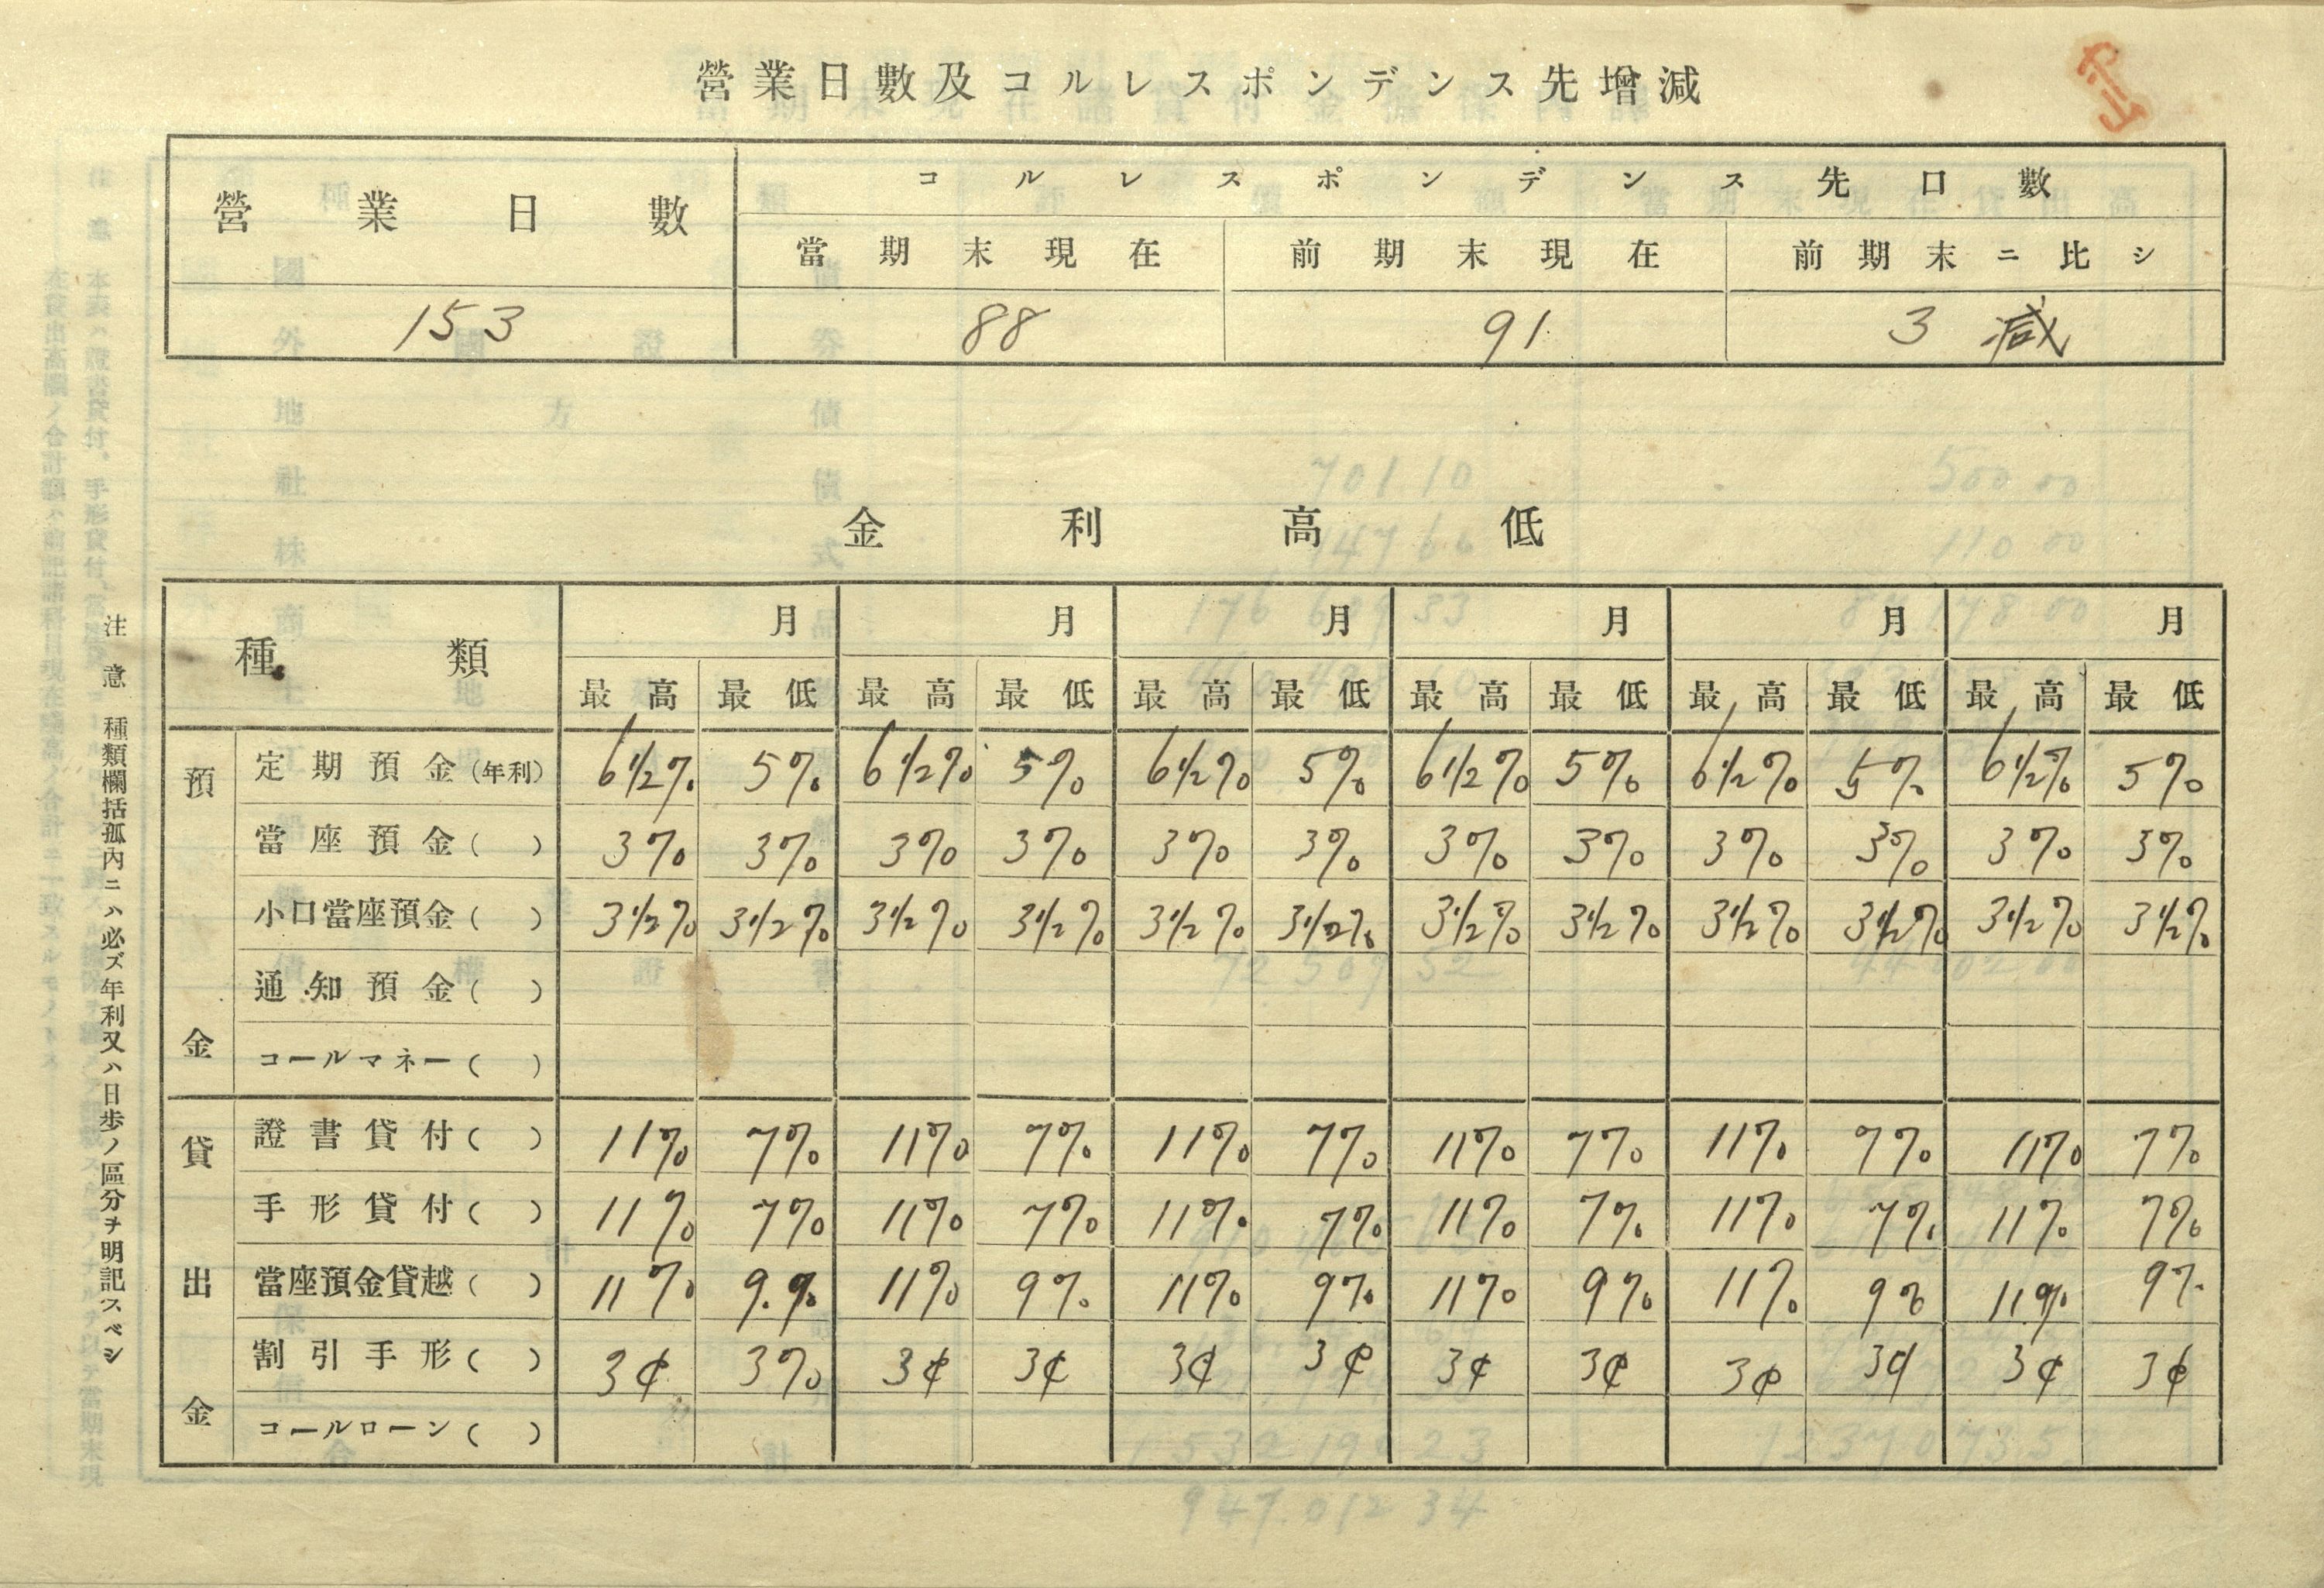 營業日數及コルレスポンデンス先增減
營業日數 コルレスポンデンス先口數
當期末現在 前期末現在 前期末ニ比シ
153 88 91 3 減
金利高低
種類 月 月 月 月 月 月
最高 最低 最高 最低 最高 最低 最高 最低 最高 最低 最高 最低
預金
定期預金(年利) 6 1/2% 5% 6 1/2% 5% 6 1/2% 5% 6 1/2% 5% 6 1/2% 5% 6 1/2% 5%
當座預金( ) 3% 3% 3% 3% 3% 3% 3% 3% 3% 3% 3% 3%
小口當座預金( ) 3 1/2% 3 1/2% 3 1/2% 3 1/2% 3 1/2% 3 1/2% 3 1/2% 3 1/2% 3 1/2% 3 1/2% 3 1/2% 3 1/2%
通知預金( )
コールマネー( )
貸出金
證書貸付( ) 11% 7% 11% 7% 11% 7% 11% 7% 11% 7% 11% 7%
手形貸付( ) 11% 7% 11% 7% 11% 7% 11% 7% 11% 7% 11% 7%
當座預金貸越( ) 11% 9% 11% 9% 11% 9% 11% 9% 11% 9% 11% 9%
割引手形( ) 3¢ 3% 3¢ 3¢ 3¢ 3¢ 3¢ 3¢ 3¢ 3¢ 3¢ 3¢
コールローン( )
注意 種類欄括孤內ニハ必ズ年利又ハ日步ノ區分ヲ明記スベシ